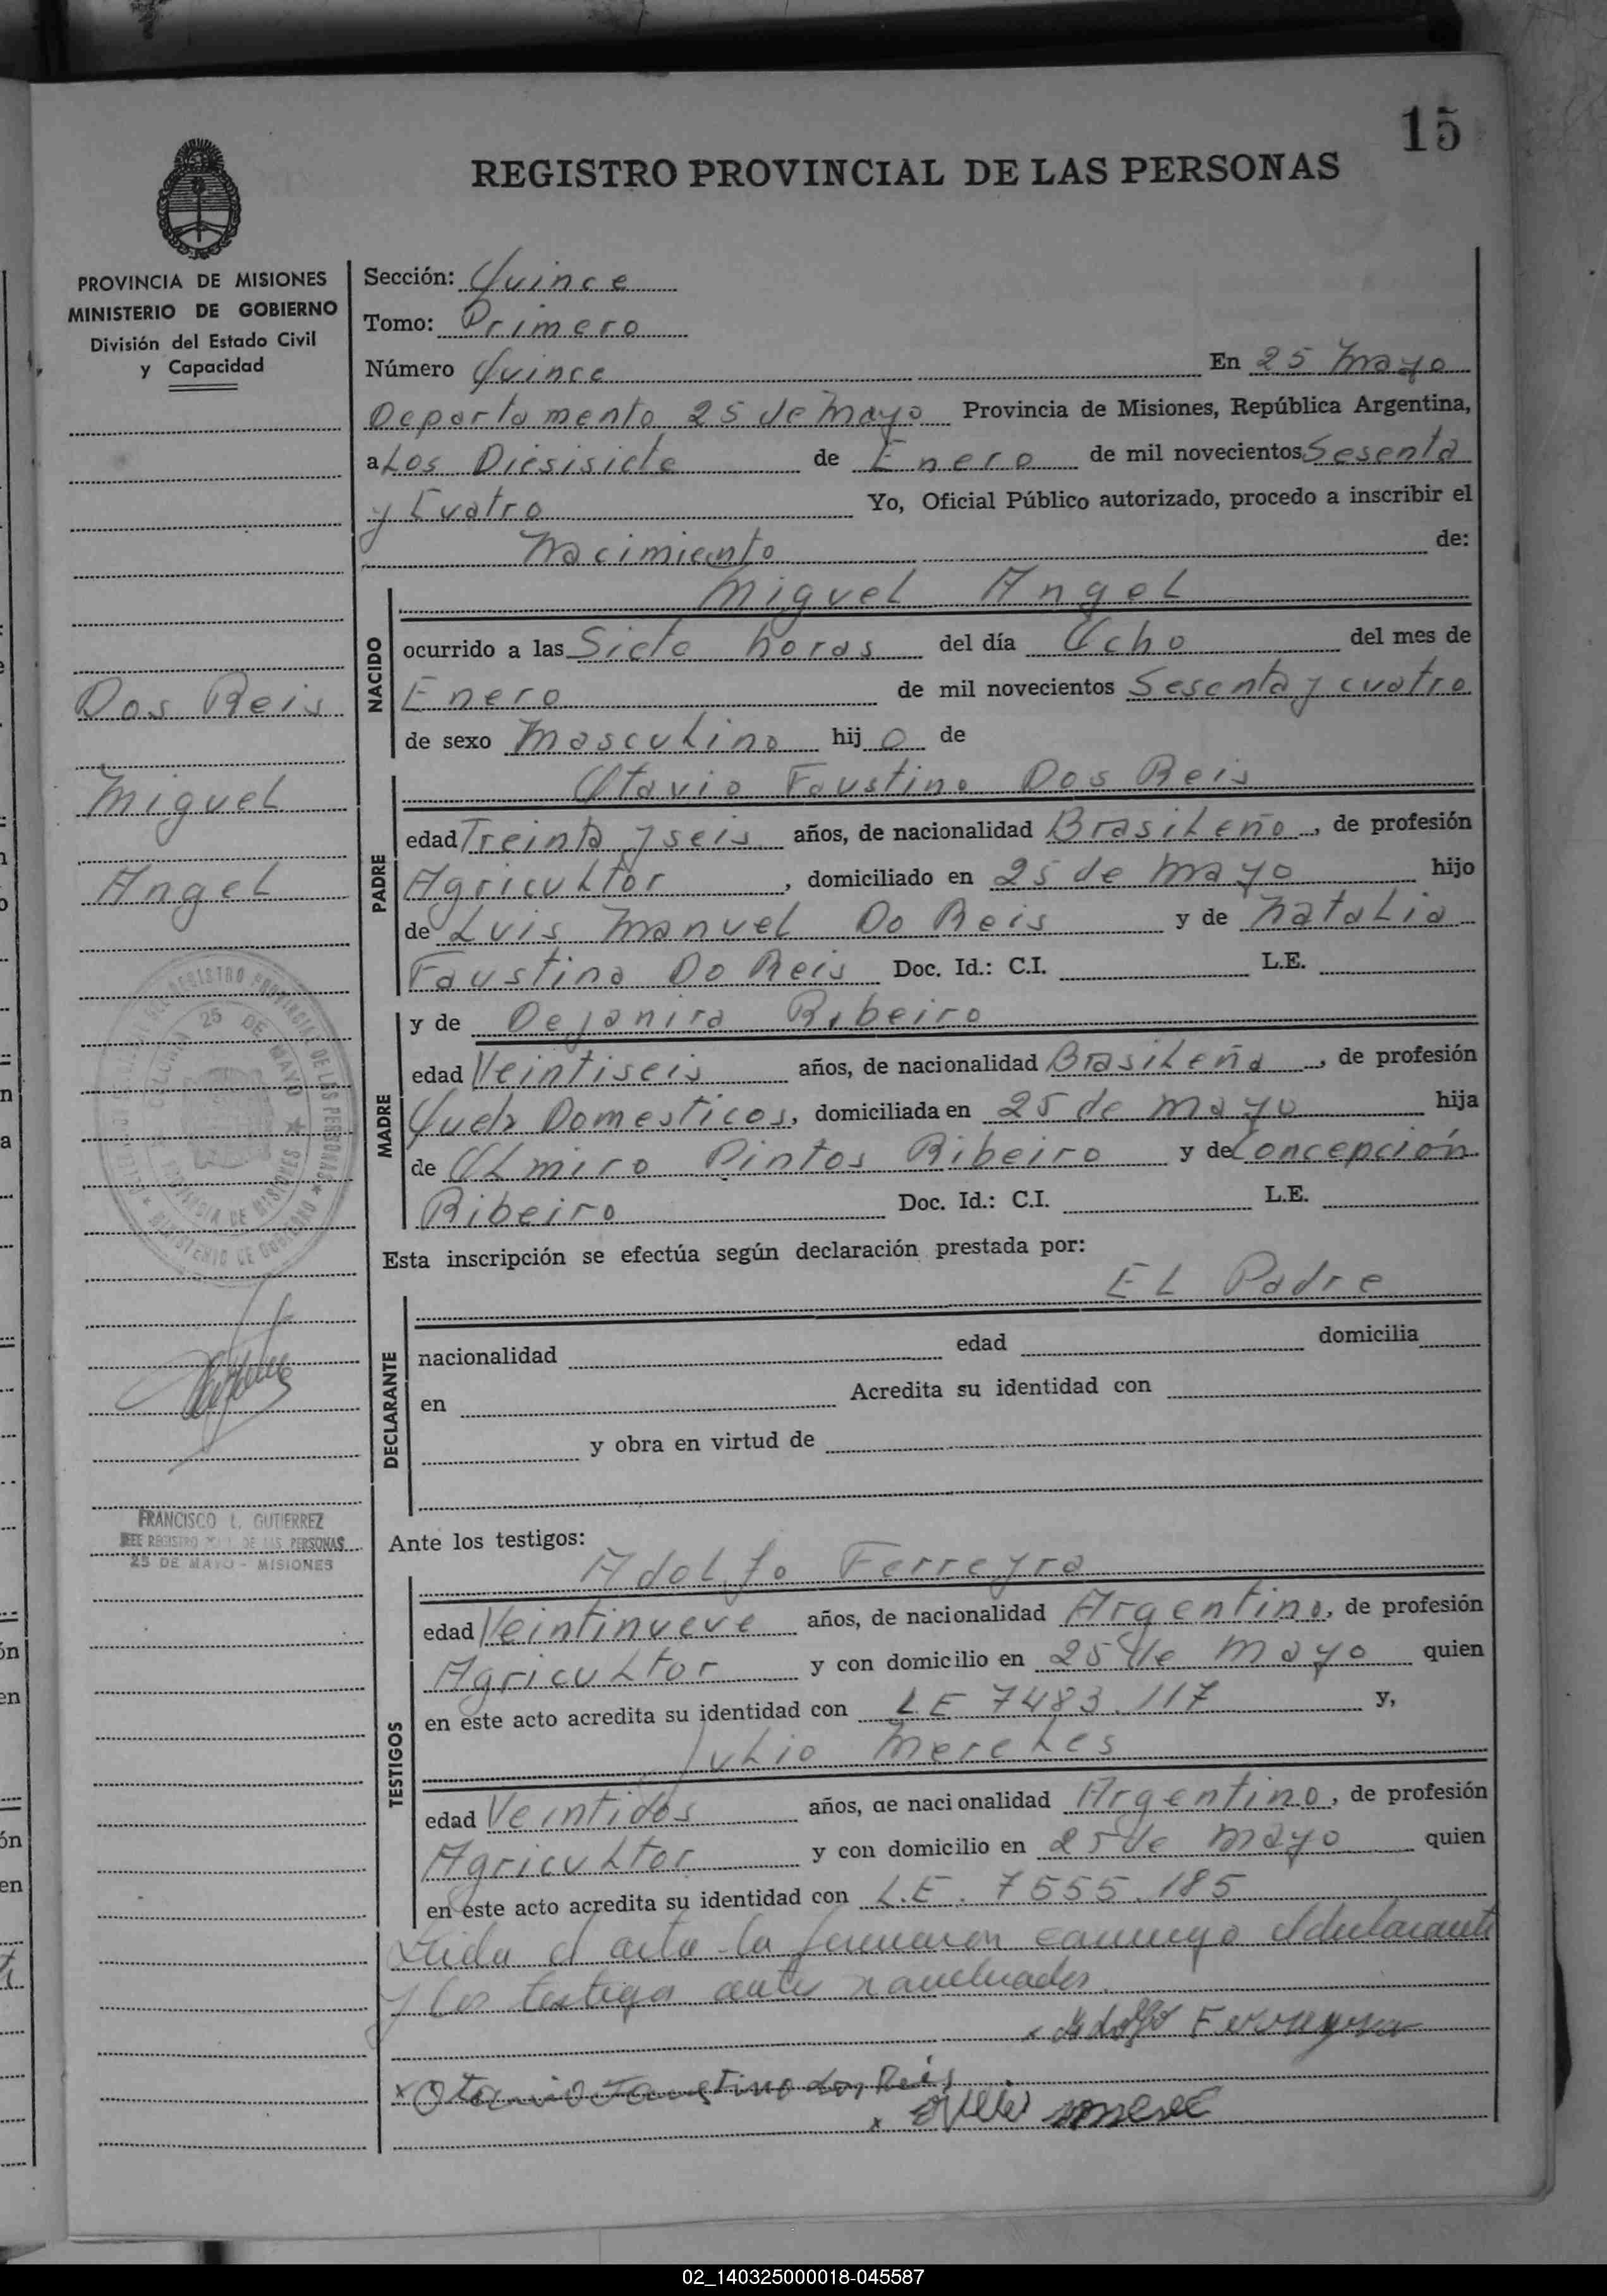 15
REGISTRO PROVINCIAL DE LAS PERSONAS
PROVINCIA DE MISIONES
MINISTERIO DE GOBIERNO
División del Estado Civil
y Capacidad
Dos Reis
Miguel
Angel
25 DE MAYO
FRANCISCO L. GUTIERREZ
JEFE REGISTRO DE LAS PERSONAS
25 DE MAYO - MISIONES
Sección: Quince
Tomo: Primero
Número Quince En 25 Mayo
Departamento 25 de Mayo Provincia de Misiones, República Argentina,
a Los Diesisiete de Enero de mil novecientos Sesenta
y Cuatro Yo, Oficial Público autorizado, procedo a inscribir el
Nacimiento de:
NACIDO
Miguel Angel
ocurrido a las Siete horas del día Ocho del mes de
Enero de mil novecientos Sesenta y cuatro
de sexo Masculino hij o de
PADRE
Otavio Faustino Dos Reis
edad Treinta y seis años, de nacionalidad Brasileño, de profesión
Agricultor, domiciliado en 25 de Mayo hijo
de Luis Manuel Do Reis y de Natalia
Faustina Do Reis Doc. Id.: C.I. L.E.
MADRE
y de Dejanira Ribeiro
edad Veintiseis años, de nacionalidad Brasileña, de profesión
Queh Domesticos, domiciliada en 25 de Mayo hija
de Olmiro Pintos Ribeiro y de Concepción
Ribeiro Doc. Id.: C.I. L.E.
Esta inscripción se efectúa según declaración prestada por:
DECLARANTE
EL Padre
nacionalidad edad domicilia
en Acredita su identidad con
y obra en virtud de
Ante los testigos:
TESTIGOS
Adolfo Ferreyra
edad Veintinueve años, de nacionalidad Argentino, de profesión
Agricultor y con domicilio en 25 de Mayo quien
en este acto acredita su identidad con L.E 7483.117 y,
Julio Mereles
edad Veintidos años, de nacionalidad Argentino, de profesión
Agricultor y con domicilio en 25 de Mayo quien
en este acto acredita su identidad con L.E. 7555.185
Leida el acta la firmaron conmigo el declarante
y los testigos antes
x Adolfo Ferreyra
x Otavio Faustino dos Reis
x
02_140325000018-045587